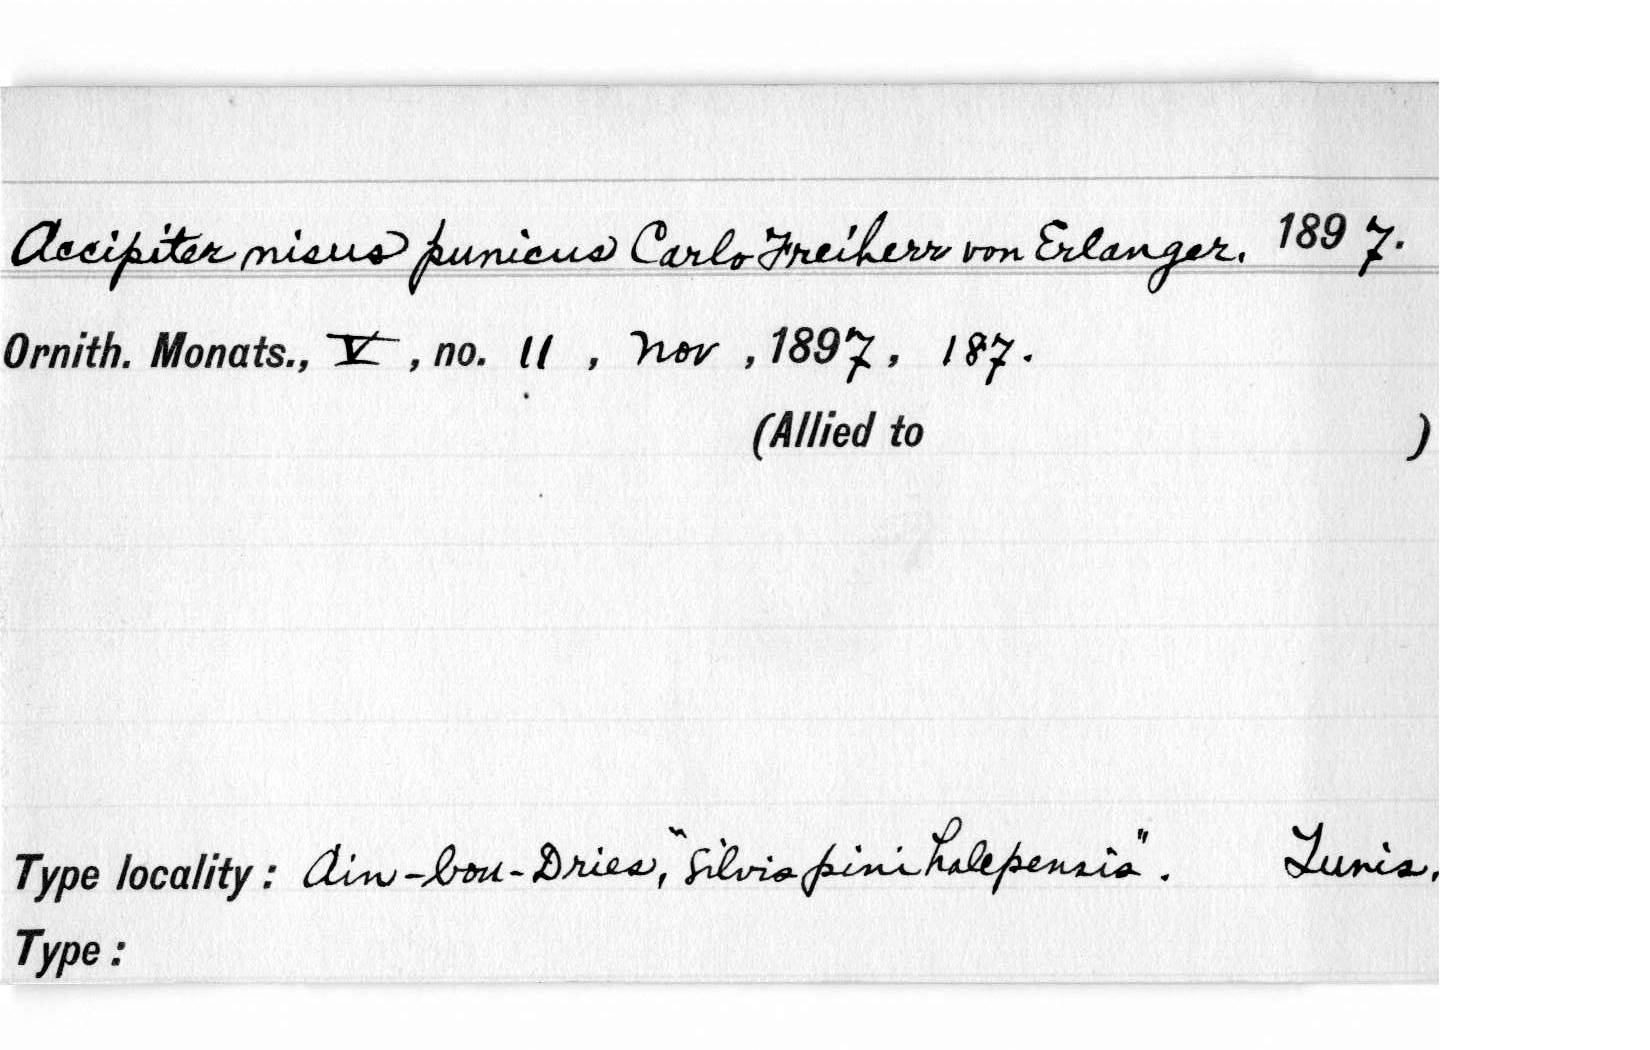 Accipiter nisus punicus Carlo Freiherr von Erlanger. 1897.
Ornith. Monats., V, no. 11, Nov, 1897, 187.
(Allied to )
Type locality: Ain-bou-Dries, "Silvis pini halepensis". Tunis.
Type: